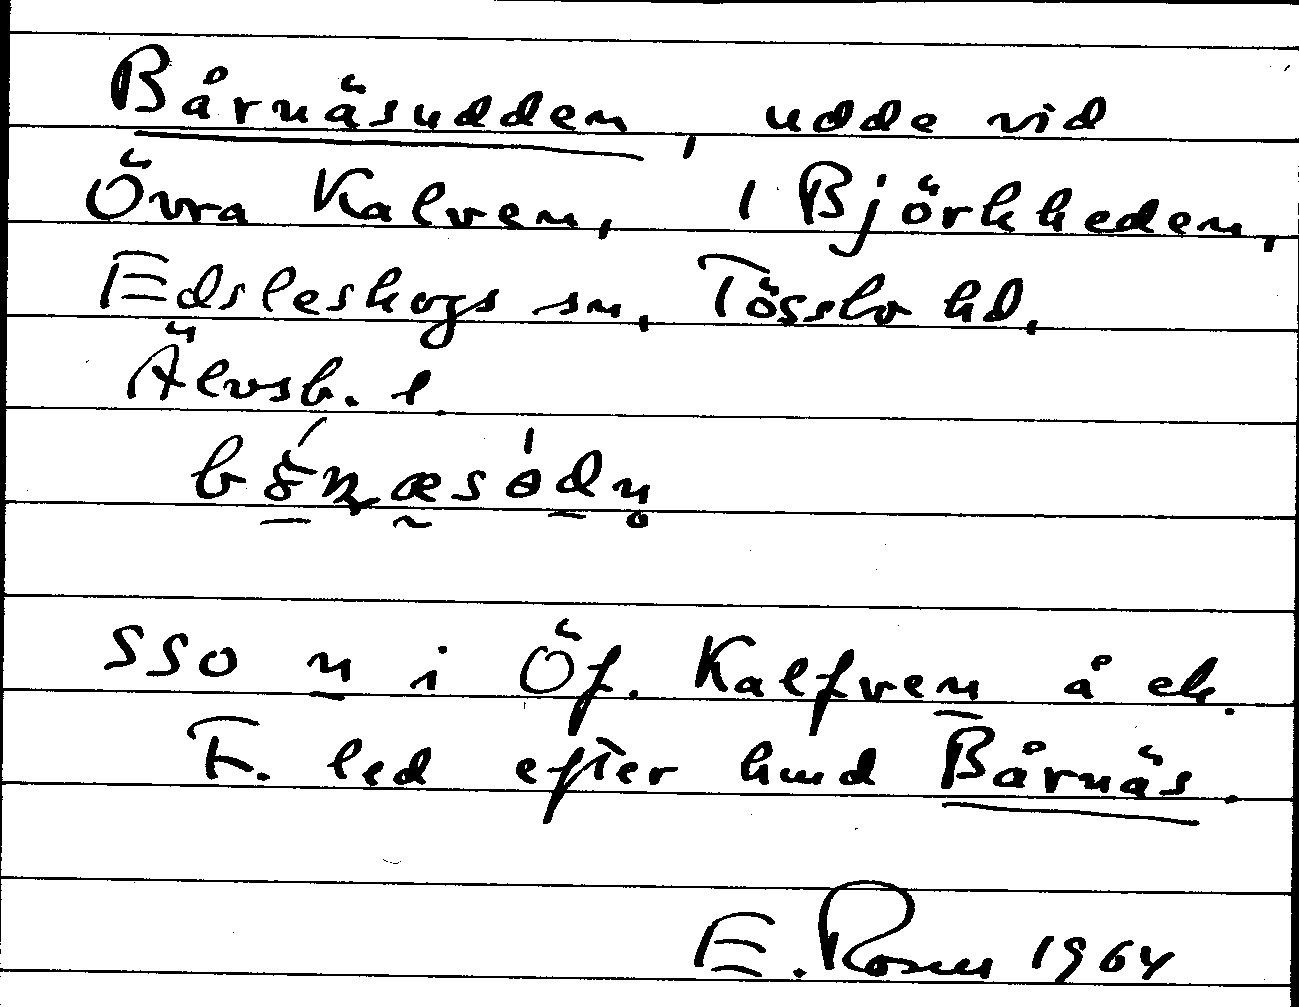 Bårnäsudden, udde vid
Övra Kalven, i Björkheden,
Edsleskogs sn, Tössbo hd,
Älvsb. l.
SSO n i Öf. Kalfven å ek.
F. led efter hmd Bårnäs.
E. Rosen 1964